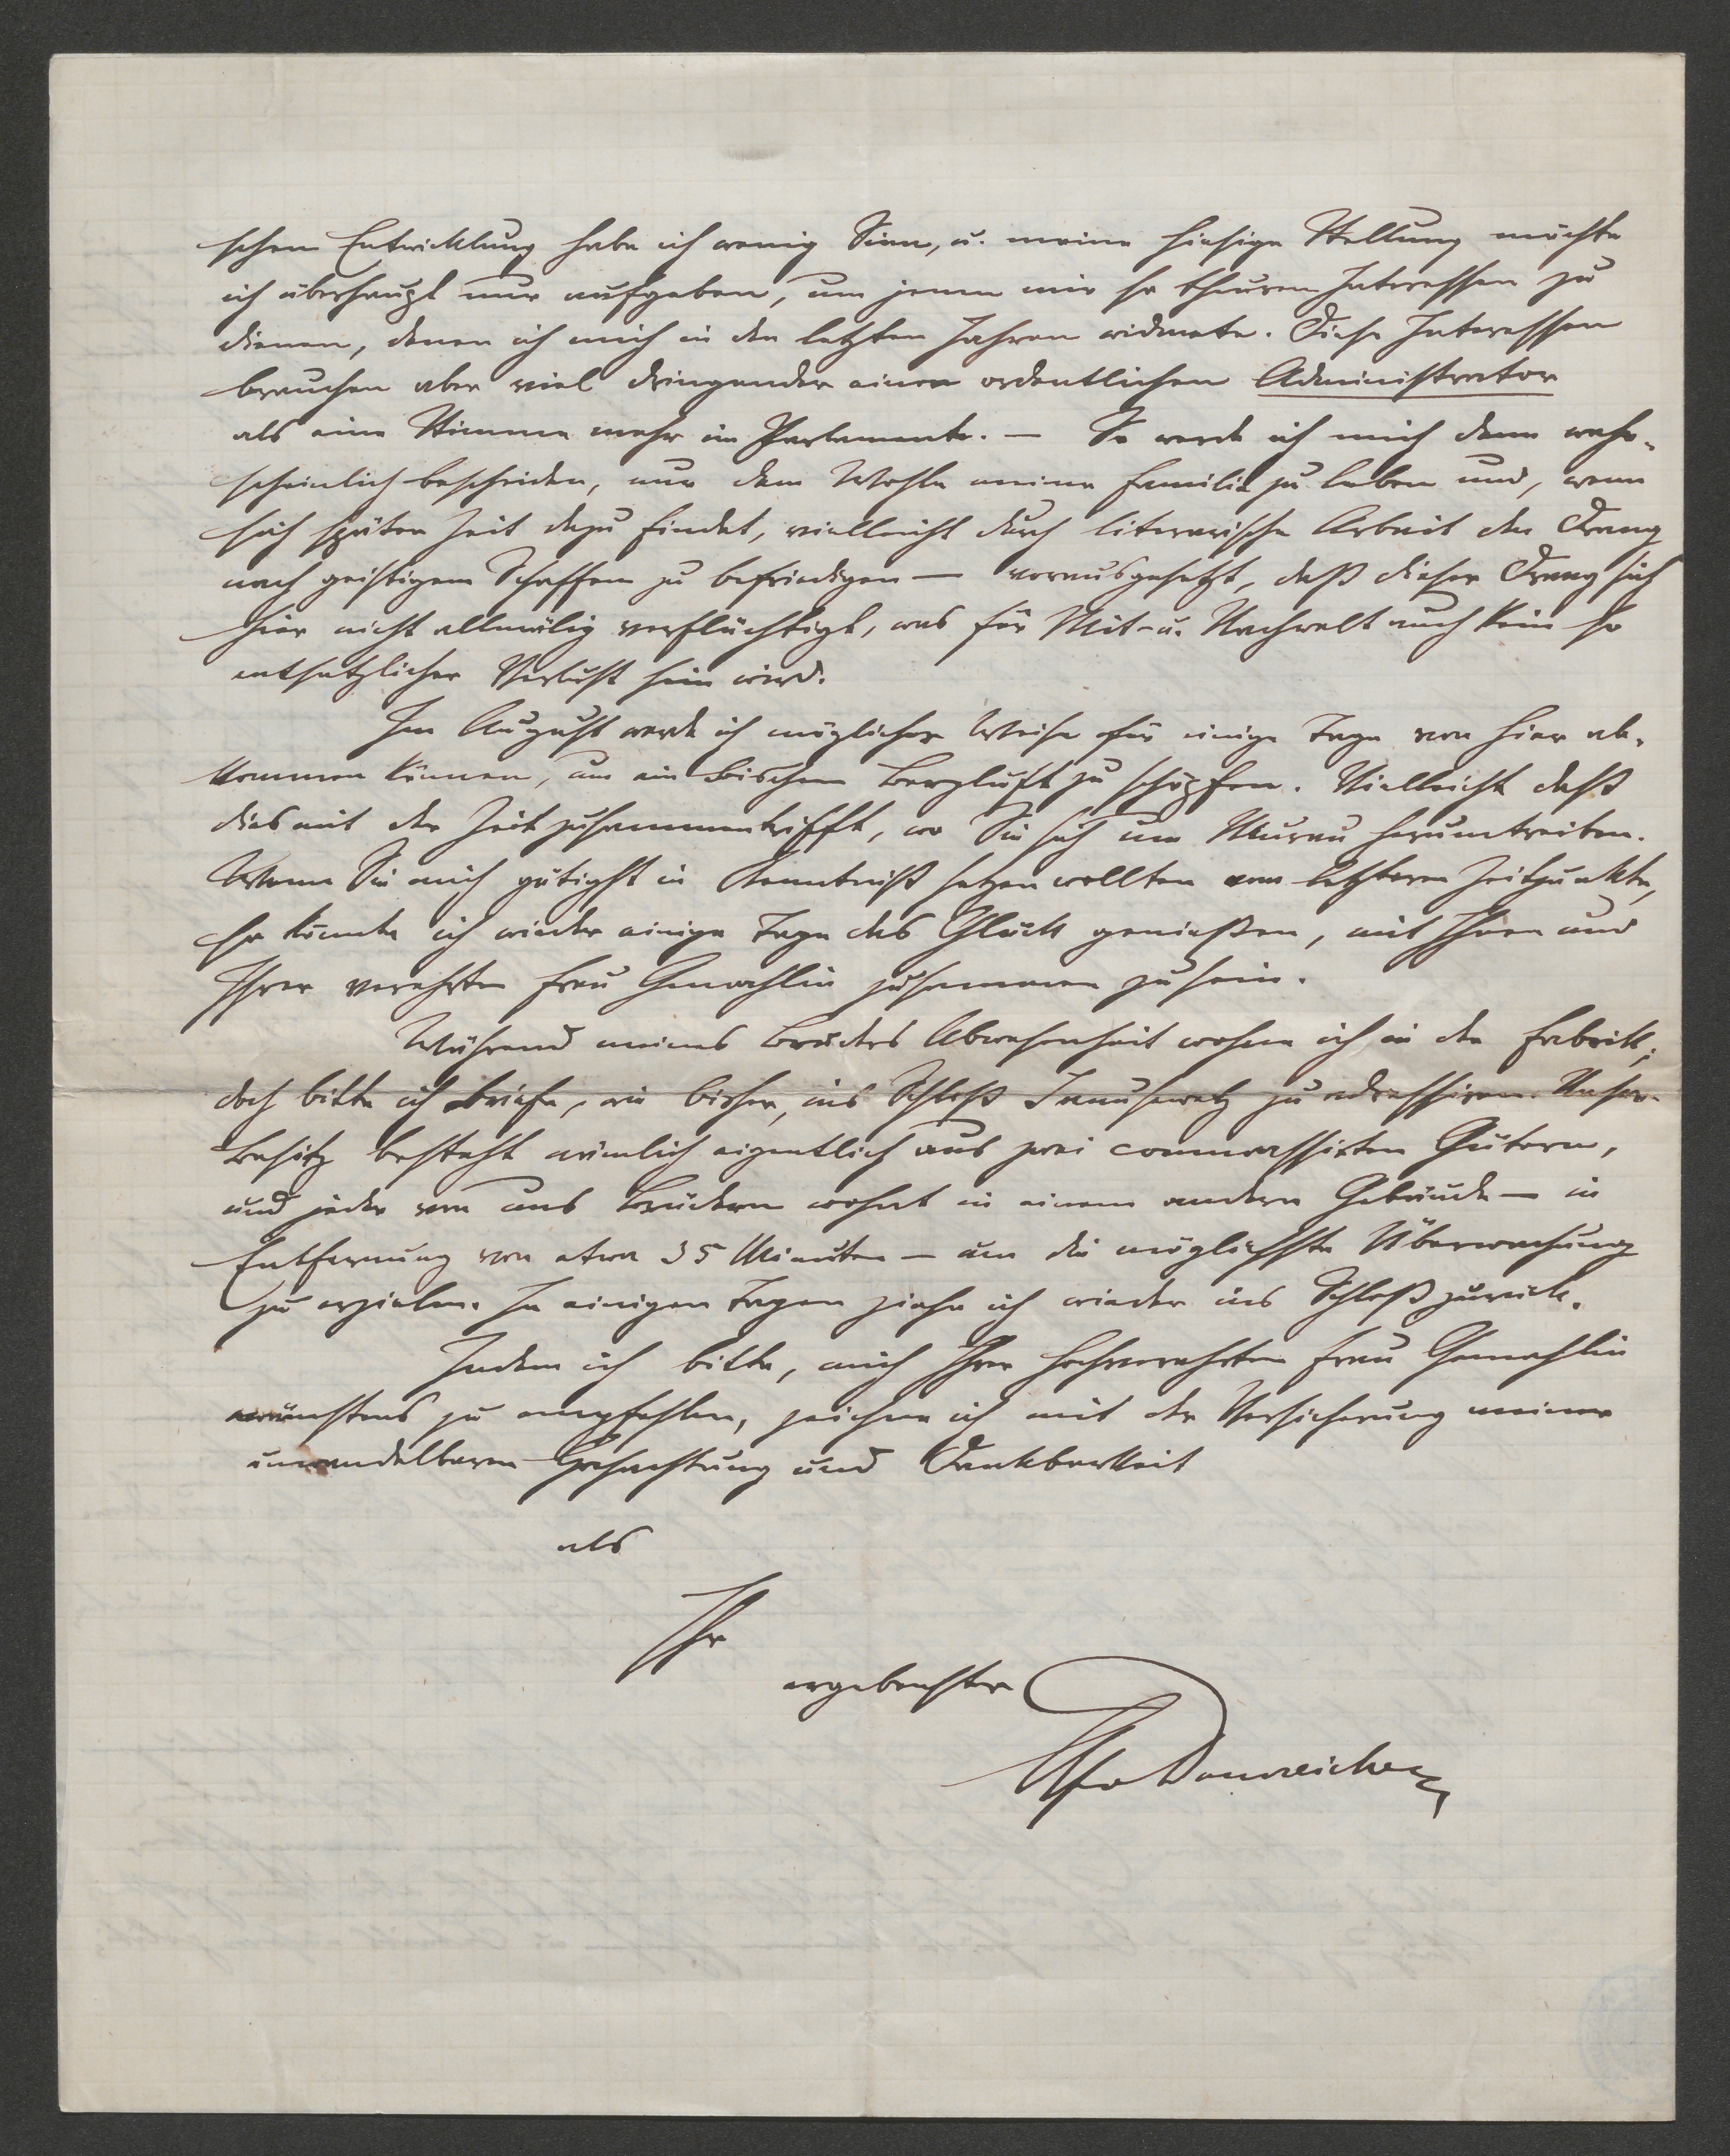 schen Entwicklung habe ich wenig Sinn, u. meine hiesige Stellung möchte
ich überhaupt nur aufgeben, um jenen mir so theuren Interessen zu
dienen, denen ich mich in den letzten Jahren widmete. Diese Interessen
brauchen aber viel dringender einen ordentlichen Administrator
als eine Stimme mehr im Parlamente. — So werde ich mich denn wahr-
scheinlich bescheiden, nur dem Wohle meiner Familie zu leben und, wenn
sich später Zeit dazu findet, vielleicht durch literarische Arbeit den Drang
nach geistigem Schaffen zu befriedigen — vorausgesetzt, daß dieser Drang sich
hier nicht allmälig verflüchtigt, was für Mit- u. Nachwelt auch kein so
entsetzlicher Verlust sein wird.
Im August werde ich möglicher Weise für einige Tage von hier ab-
kommen können, um ein Bischen Bergluft zu schöpfen. Vielleicht daß
dies mit der Zeit zusammentrifft, wo Sie sich um Murau herumtreiben.
Wenn Sie mich gütigst in Kenntniß setzen wollten vom letzteren Zeitpunkte,
so könnte ich wieder einige Tage das Glück genießen, mit Ihnen und
Ihrer verehrten Frau Gemahlin zusammen zu sein.
Während meines Bruders Abwesenheit wohne ich in der Fabrik;
doch bitte ich Briefe, wie bisher, ins Schloß Janusevetz zu adressiren. Unser
Besitz besteht nämlich eigentlich aus zwei commassirten Gütern,
und jeder von uns Brüdern wohnt in einem andern Gebäude — in
Entfernung von etwa 35 Minuten — um die möglichste Überwachung
zu erzielen. In einigen Tagen ziehe ich wieder ins Schloß zurück.
Indem ich bitte, mich Ihrer hochverehrten Frau Gemahlin
wärmstens zu empfehlen, zeichne ich mit der Versicherung meiner
unwandelbaren Hochachtung und Dankbarkeit
als
Ihr
ergebenster
Dumreicher